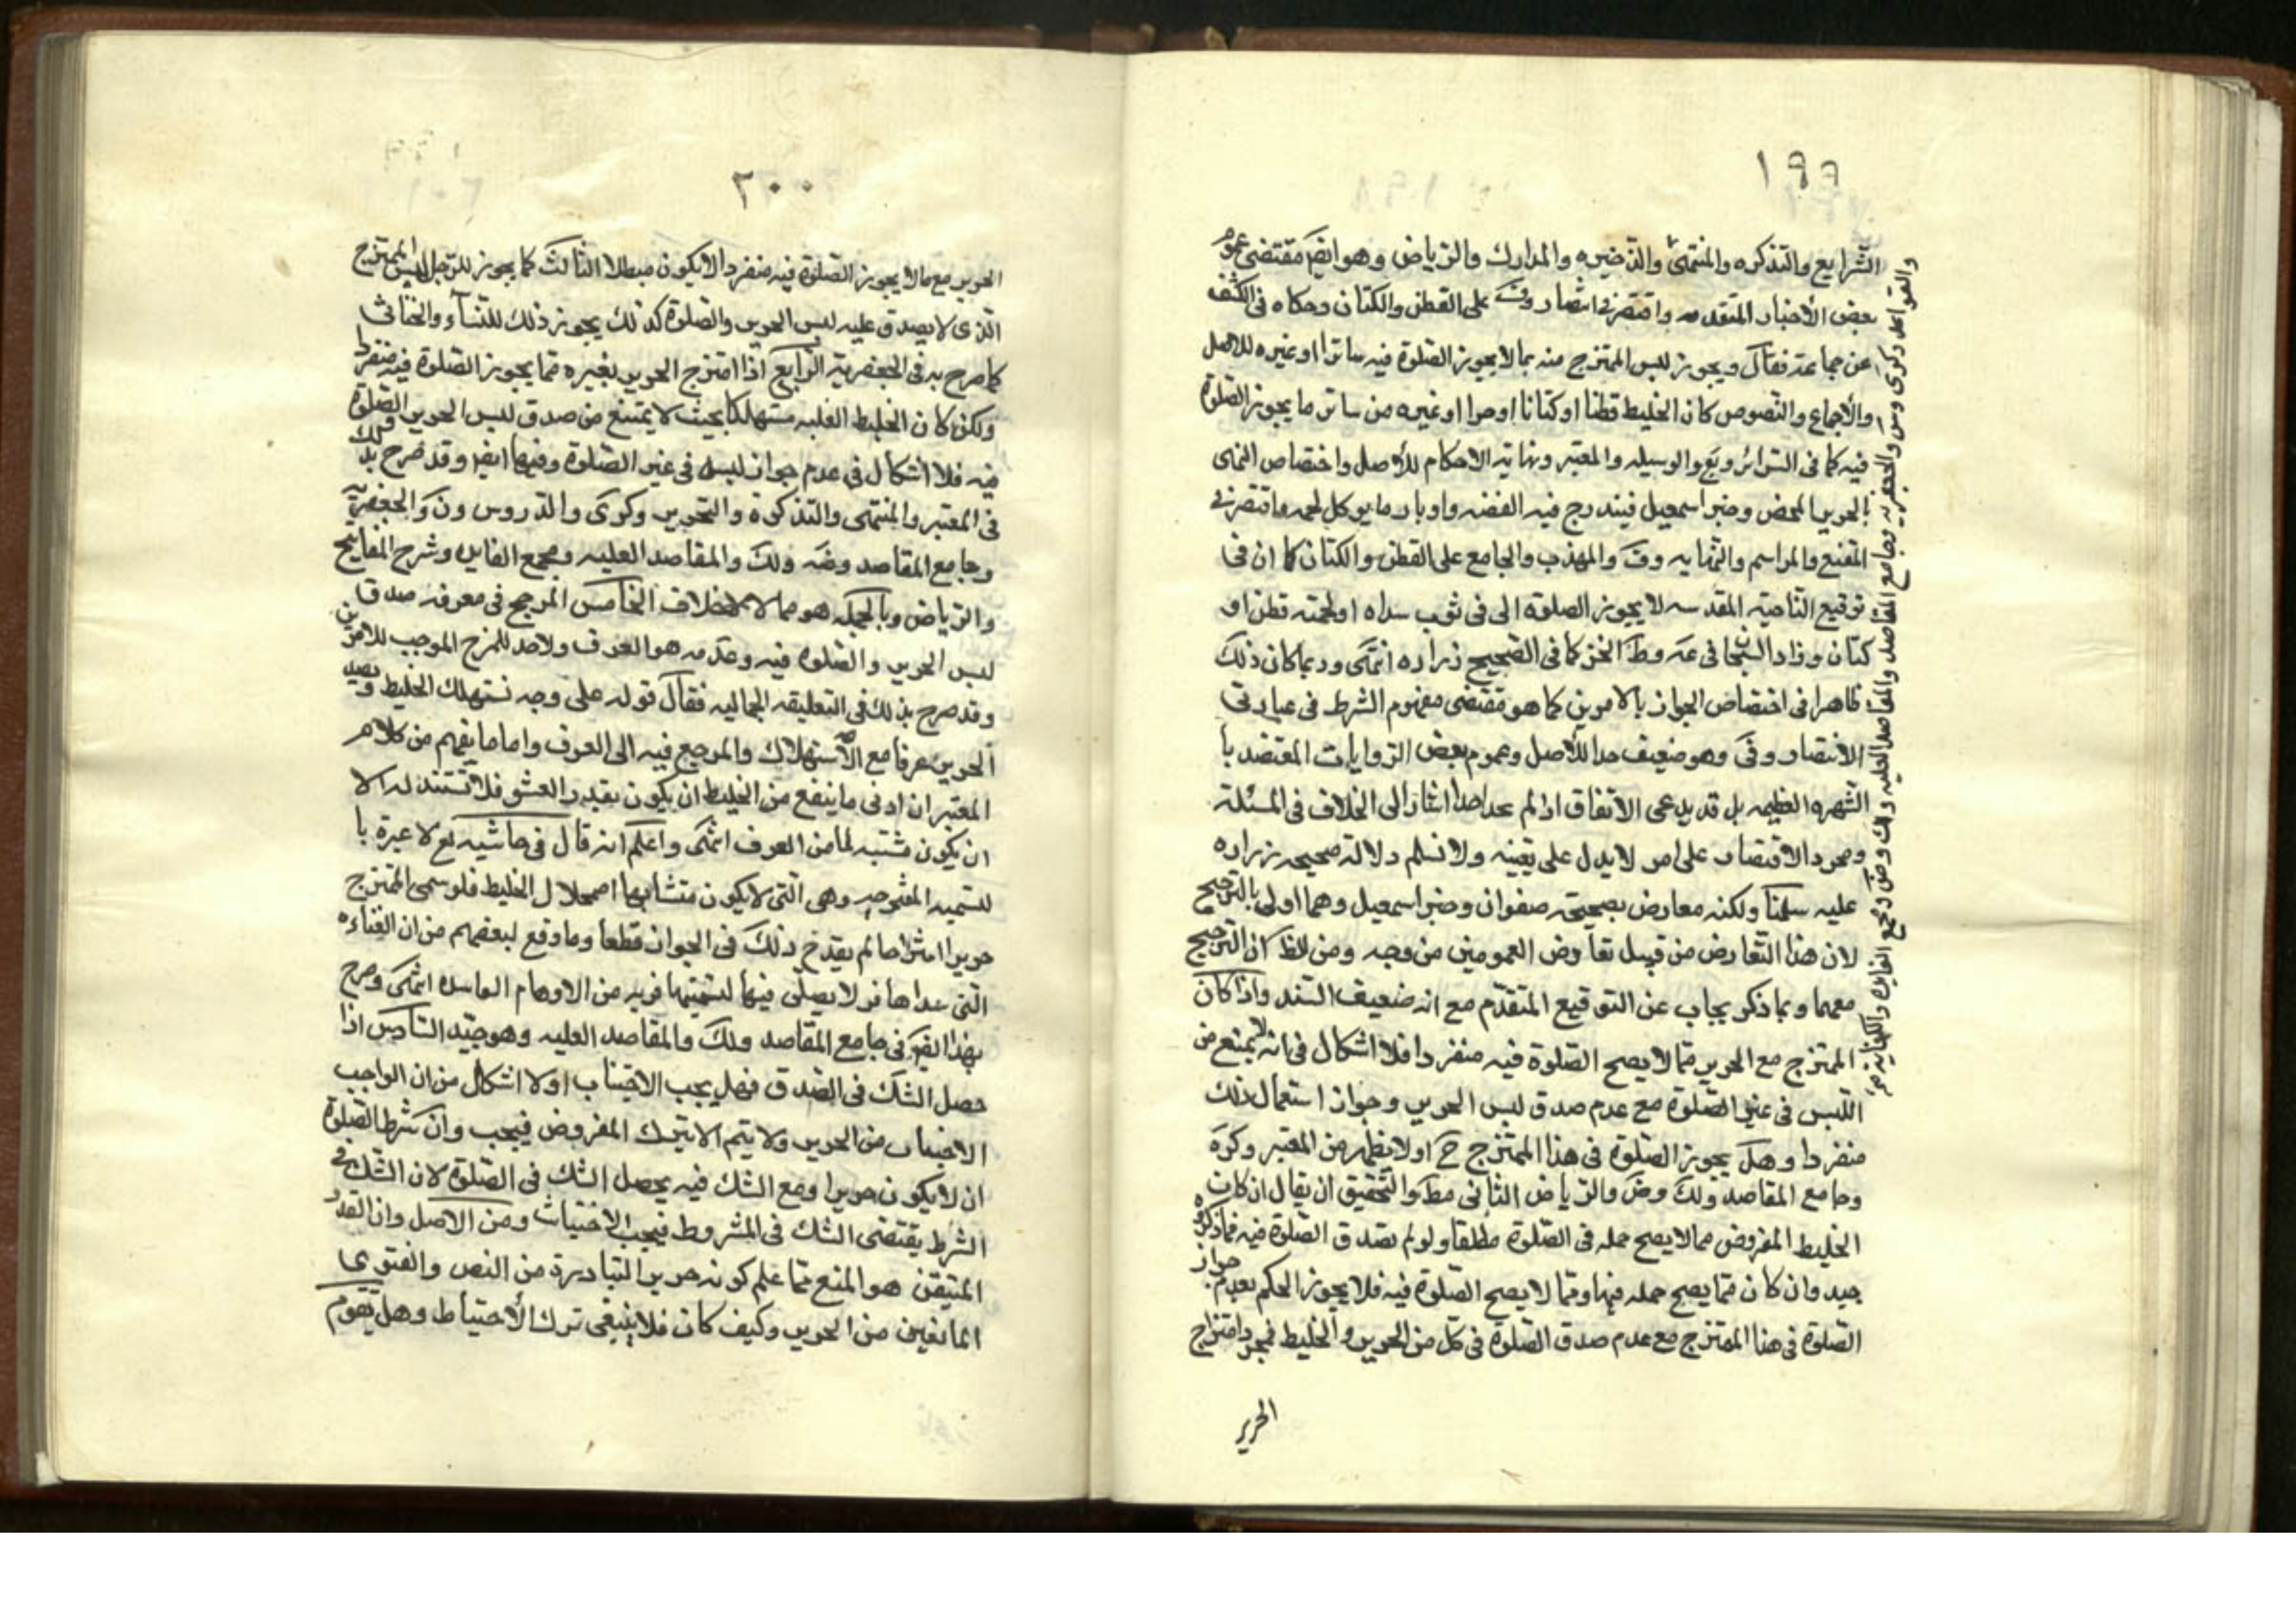 ١٩٩
الشرايع والتذكره والمنتهى والذخيره والمدارك والرياض وهو ايضا مقتضى عموم
بعض الأخبار المتقدمه واقتصر في على القطن والكتان وحكاه في الكشف
عن جماعة فقال ويجوز لبس الممتزج منه بما لا يجوز الصلوة فيه ساترا او غيره للاصل
والاجماع والنصوص كان الخليط قطنا او كتانا او صوا او غيره من ساتر ما يجوز الصلوة
فيه كما في السرائر ويع والوسيله والمعتبر ونهاية الاحكام للأصل واختصاص النهى
بالحرير المحض وخبر اسمعيل فيندرج فيه الفضه واوبار ما يوكل لحمه واقتصر في
المقنع والمراسم والنهايه وف والمهذب والجامع على القطن والكتان كما ان في
توقيع الناحية المقدسه لا يجوز الصلوة الى في ثوب سداه او لحمته قطن او
كتان وزاد الشيخا في عه وط الخز كما في الصحيح زراره انتهى وربما كان ذلك
ظاهرا في اختصاص الجواز بالامرين كما هو مقتضى مفهوم الشرط في عبارتى
الانتصار وفى وهو ضعيف جدا للأصل وعموم بعض الروايات المعتضد با
الشهره العظيمه بل قد يدعى الاتفاق اذ لم نجد احدا اشار الى الخلاف في المسئلة
ومجرد الاقتصار على امر لا يدل على تعينه ولا نسلم دلالة صحيحه زراره
عليه سلمنا ولكنه معارض بصحيحة صفوان وخبر اسمعيل وهما اولى بالترجيح
لان هذا التعارض من قبيل تعارض العمومين من وجه ومن الظ كان الترجيح
معهما وبما ذكر يجاب عن التوقيع المتقدم مع انه ضعيف السند واذا كان
الممتزج مع الحرير مما لا يصح الصلوة فيه منفردا فلا اشكال في انه لا يمنع من
اللبس في غير الصلوة مع عدم صدق لبس الحرير وجواز استعمال ذلك
منفردا وهل يجوز الصلوة في هذا الممتزج ح او لا يظهر من المعتبر وكره
وجامع المقاصد ولك وض والرياض الثاني مط والتحقيق ان يقال ان كان
الخليط المفروض مما لا يصح حمله في الصلوة مطلقا ولو لم يصدق الصلوة فيه فما ذكروه
جيد وان كان مما يصح حمله فيها ومما لا يصح الصلوة فيه فلا يجوز الحكم بعدم جواز
الصلوة في هذا الممتزج مع عدم صدق الصلوة في كل من الحرير والخليط فمجرد امتزاج
الحرير
والقواعد وكرى وس والجعفريه وجامع المقاصد والمقاصد العليه ولك وض ومجمع الفايده والكفايه
٢٠٠
الحرير مع ما لا يجوز الصلوة فيه منفردا لا يكون مبطلا الثالث كما يجوز للرجل لبس الممتزج
الذى لا يصدق عليه لبس الحرير والصلوة كذلك يجوز ذلك للنساء والخناثى
كما صرح به في الجعفرية الرابع اذا امتزج الحرير بغيره مما يجوز الصلوة فيه منفردا
ولكن كان الخليط الغلبه مستهلكا بحيث لا يمتنع من صدق لبس الحرير والصلوة
فيه فلا اشكال في عدم جواز لبسه في غير الصلوة وفيها ايضا وقد صرح بذلك
في المعتبر والمنتهى والتذكرة والتحرير وكرى والدروس ون والجعفرية
وجامع المقاصد وضه ولك والمقاصد العليه ومجمع الفايده وشرح المفاتيح
والرياض وبالجمله هو مما لا خلاف الخامس المرجع في معرفه صدق
لبس الحرير والصلوة فيه وعدمه هو العرف ولا حد للمزج الموجب للامرين
وقد صرح بذلك في التعليقه الجماليه فقال قوله على وجه نستهلك الخليط ويصد
الحرير عرفا مع الاستهلاك والمرجع فيه الى العرف واما ما يفهم من كلام
المعتبر ان ادنى ما ينفع من الخليط ان يكون بقدر العشر فلا تستند له الا
ان يكون مثبتبه لما من العرف انتهى واعلم انه قال في حاشيه لع لا عبرة با
لتسميه الممزوجه وهى التى لا يكون منشأيها اضمحلال الخليط فلو سمى الممتزج
حريرا اشتراصا لم يقدح ذلك في الجواز قطعا وما وقع لبعضهم من ان القناءه
التى سداها قز لا يصلى فيها لتسميتها قزيه من الاوهام الفاسده انتهى وصرح
بهذا ايضا في جامع المقاصد ولك والمقاصد العليه وهو جيد السادس اذا
حصل الشك في الصدق فهل يجب الاجتناب او لا اشكال من ان الواجب
الاجتناب من الحرير ولا يتم الا بترك المفروض فيجب وان شرط الصلوة
ان لا يكون حريرا ومع الشك فيه يحصل الشك في الصلوة لان الشك في
الشرط يقتضى الشك في المشروط فيجب الاجتناب ومن الاصل وان القدر
المتيقن هو المنع مما علم كونه حريرا لتبادره من النص والفتوى
المانعين من الحرير وكيف كان فلا ينبغى ترك الأحتياط وهل يقوم